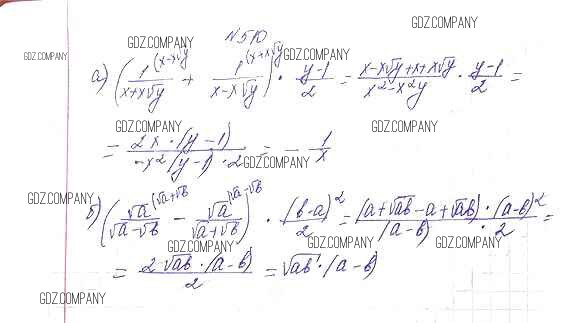 GDZ.COMPANY
№510
GDZ.COMPANY GDZ.COMPANY GDZ.COMPANY
а) (1/(x+x√y) ^(x-x√y) + 1/(x-x√y) ^(x+x√y)) · (y-1)/2 = (x-x√y+x+x√y)/(x²-x²y) · (y-1)/2 =
GDZ.COMPANY GDZ.COMPANY GDZ.COMPANY
= (2x·(y-1))/(-x²(y-1)·2) = - 1/x
GDZ.COMPANY GDZ.COMPANY GDZ.COMPANY
б) (√a/(√a-√b) ^(√a+√b) - √a/(√a+√b) ^(√a-√b)) · (b-a)²/2 = ((a+√ab-a+√ab)·(a-b)²)/((a-b)·2) =
GDZ.COMPANY GDZ.COMPANY GDZ.COMPANY
= (2√ab·(a-b))/2 = √ab·(a-b)
GDZ.COMPANY